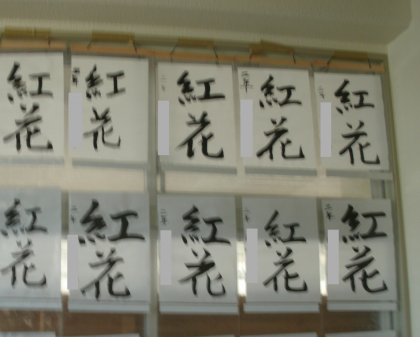 紅花
紅花
紅花
二年
紅花
紅花
紅花
紅花
紅花
紅花
紅花